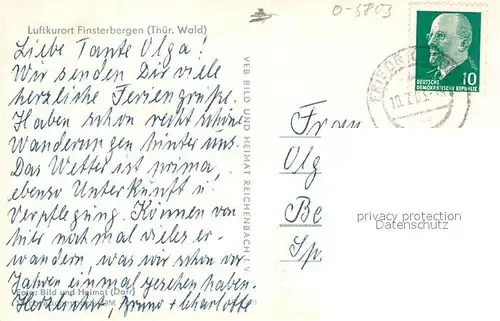 Luftkurort Finsterbergen (Thür. Wald)
O-5803
Liebe Tante Olga!
Wir senden Dir viele
herzliche Feriengrüße.
Haben schon recht schöne
Wanderungen hinter uns.
Das Wetter ist prima,
ebenso Unterkunft u.
Verpflegung. Können von
hier noch mal vieles er-
wandern, was wir schon vor
Jahren einmal gesehen haben.
Foto: Bild und Heimat (Dörr)
Herzlichst, Bruno + Charlotte
VEB BILD UND HEIMAT REICHENBACH I. V.
10
DEUTSCHE
DEMOKRATISCHE REPUBLIK
Frau
Olg
Be
Sp.
privacy protection
Datenschutz